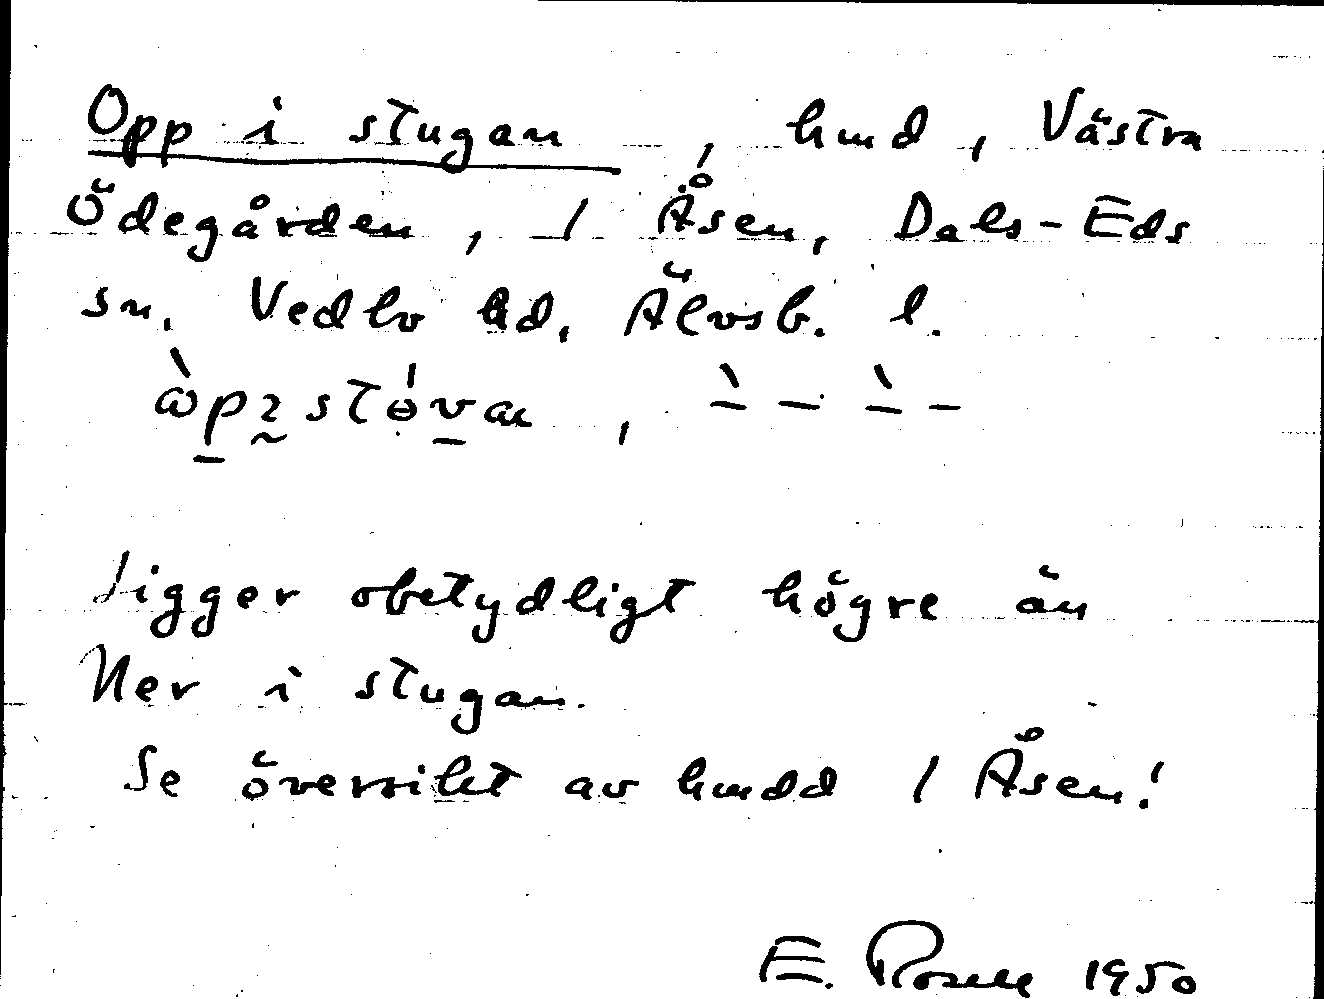 Opp i stugan, hmd, Västra
Ödegården, 1 Åsen, Dals-Eds
sn. Vedbo hd, Älvsb. l.

Ligger obetydligt högre än
Ner i stugan.
Se översikt av hmdd 1 Åsen!
E. Rosell 1950